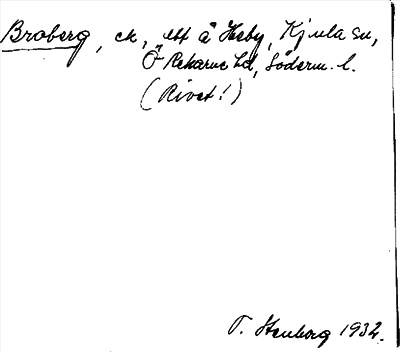 Broberg, ck, ett å Heby, Kjula sn,
Ö Rekarne hd, Söderm. l.
(Rivet!)
T. Stenborg 1932.